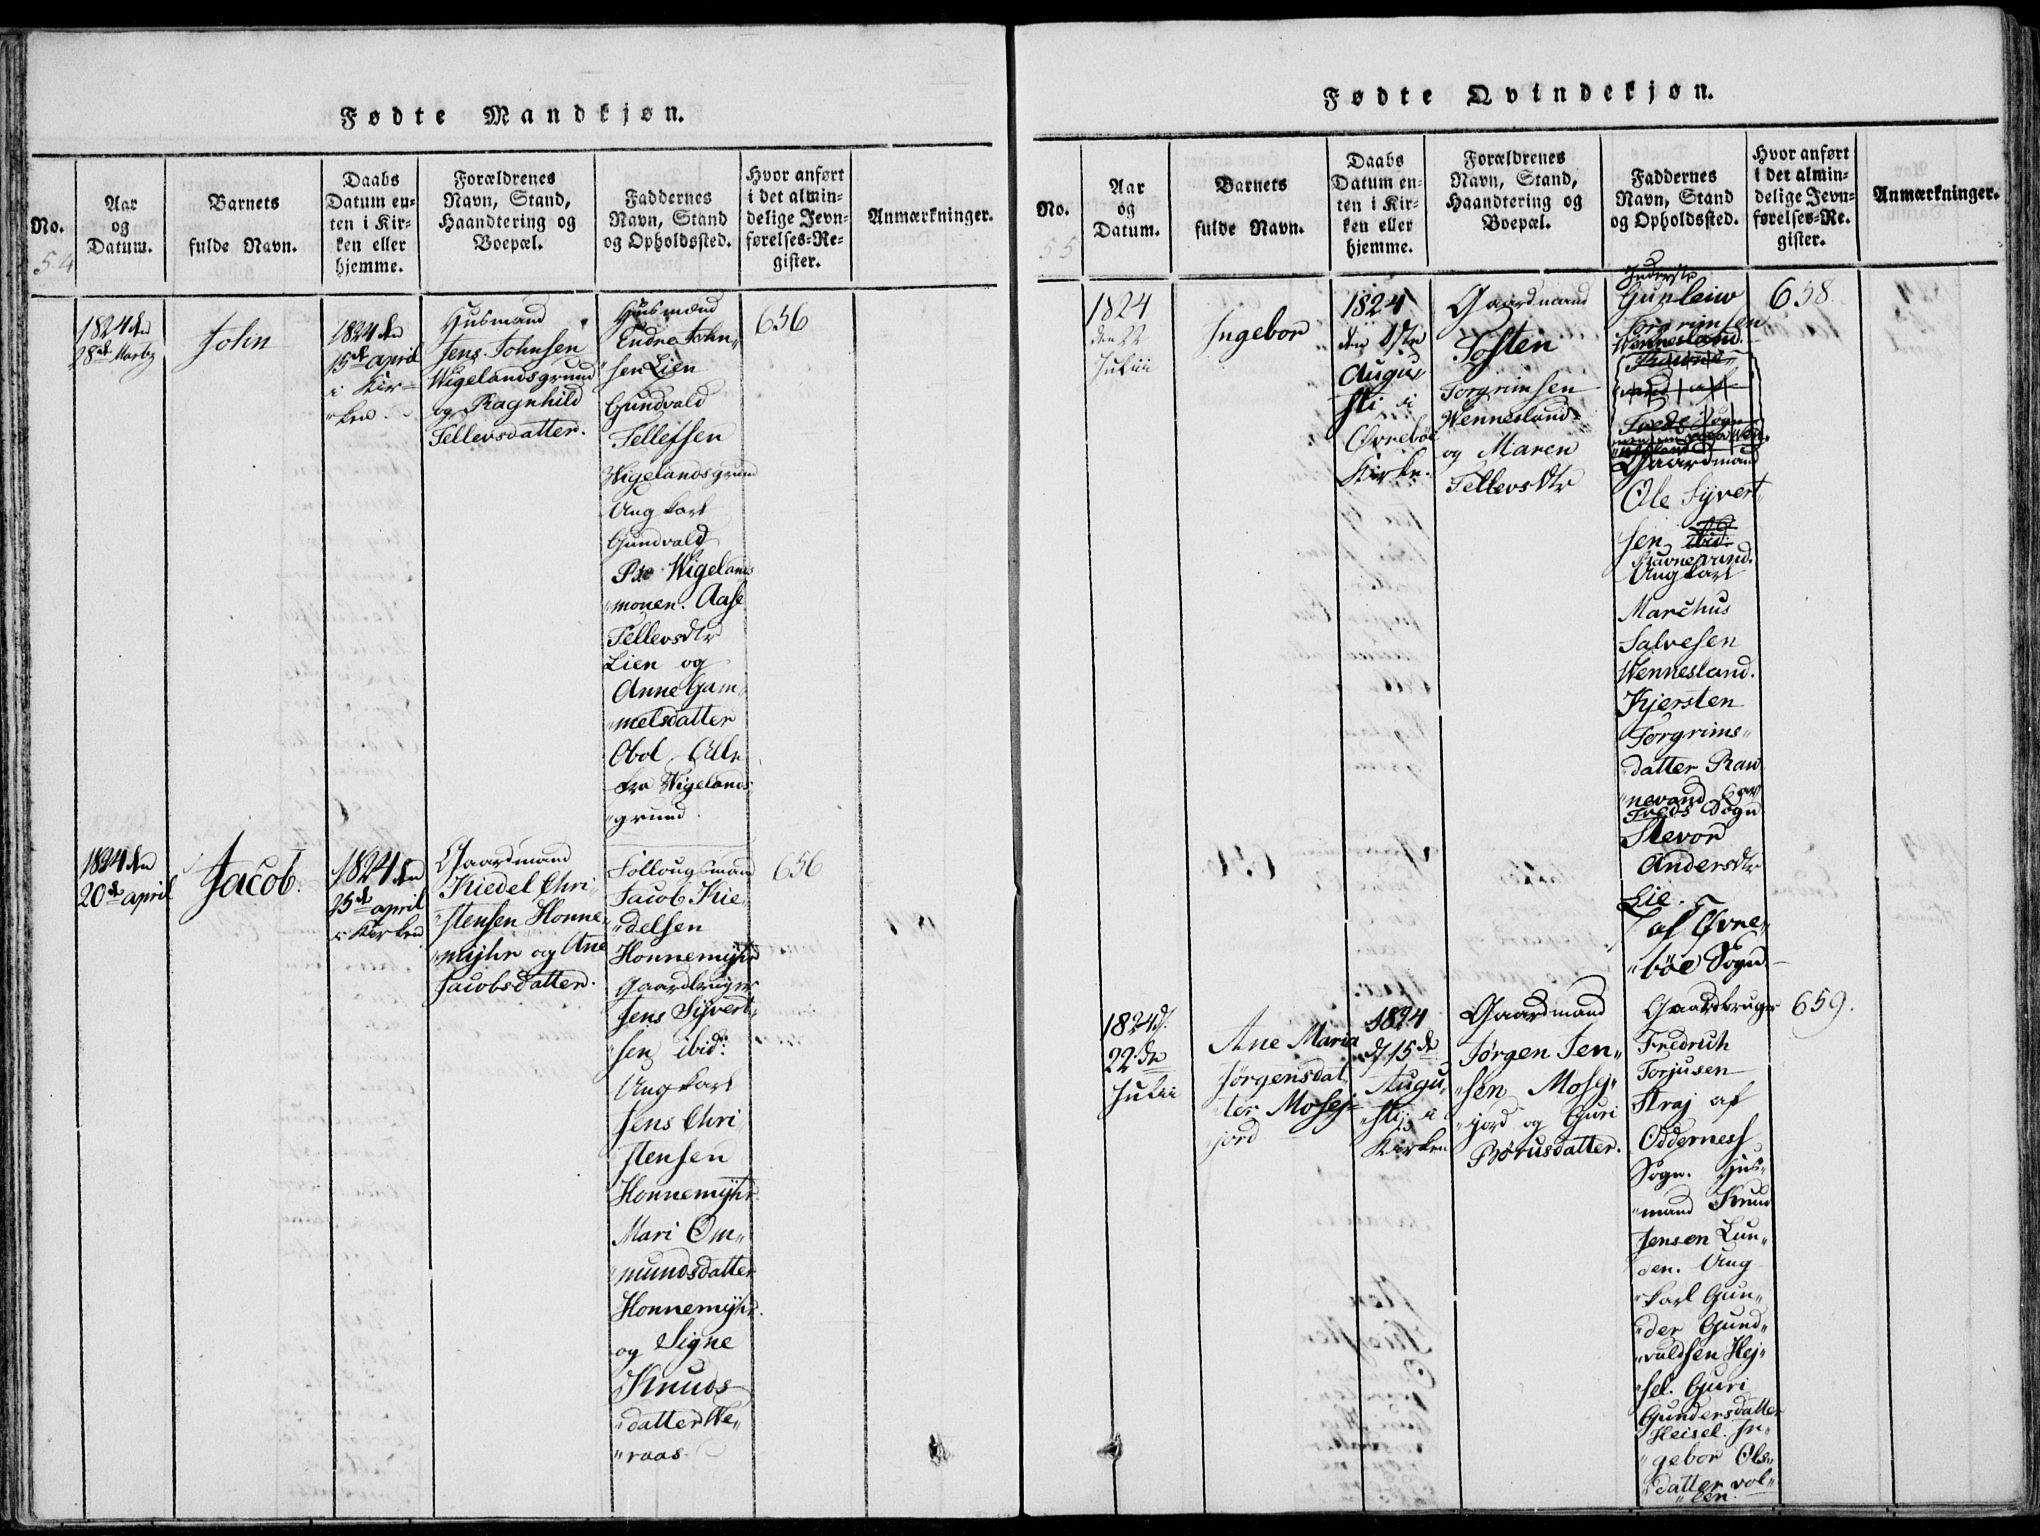 Fødte Mandkjøn.
No.
54
Aar
og
Datum.
Barnets
fulde Navn.
Daabs
Datum en-
ten i Kir-
ken eller
hjemme.
Forældrenes
Navn, Stand,
Haandtering og
Boepæl.
Faddernes
Navn, Stand
og Opholdssted.
Hvor anført
i det almin-
delige Jevn-
førelses-Re-
gister.
Anmærkninger.
1824 den
28de Marty
John
1824 den
15de april
i Kir-
ken.
Husmand
Jens Johnsen
Wigelandsgrund
og Ragnhild
Tellevsdatter.
Husmænd
Endre John„
„sen Lien
Gundvald
Tellefsen
Wigelandsgrund
Ung karl
Gundvald
Wigelands
„monen. Aase
Tellevsdtr
Lien og
Anne Gam„
„melsdatter
Obol Alle
fra Wigelands
„grund
656
1824 den
20de april
Jacob.
1824 den
25de april
i Kirken
Gaardmand
Kiedel Chri„
„stensen Honne„
„myhr og Ane
Jacobsdatter.
Jacob Kie„
„delsen
Honnemyhr
Gaardbruger
Jens Syvert„
„sen ibid:
Ung karl
Jens Chri
stensen
Honnemyhr.
Mari Om„
„mundsdatter
Honnemyhr.
og Signe
Knuds„
„datter We„
„raas.
656
Fødte Qvindekjøn.
No.
55
Aar
og
Datum.
Barnets
fulde Navn.
Daabs
Datum en-
ten i Kir-
ken eller
hjemme.
Forældrenes
Navn, Stand,
Haandtering og
Boepæl.
Faddernes
Navn, Stand
og Opholdssted.
Hvor anført
i det almin-
delige Jevn-
førelses-Re-
gister.
Anmærkninger.
1824
den 22
Julii
Ingebor
1824
den 1ste
Augu„
sti i
Øvreböe
Kirke.
Gaardmand
Tosten
Torgrimsen
Wennesland
og Maren
Tellevsdtr
Gunleiw
Torgrimsen
Wennesland.
Gaardmand
Ole Syvert„
sen
Ravnevand.
Ung karl
Marchus
Salvesen
Wennesland.
Kjersten
Torgrims„
„datter Raw
„nevand
Tveds Sogn
Stevor
Andersdtr
Lie.
af Øvre„
„böe Sogn.
658.
1824 d.
22de
Julii
Ane Maria
Jörgensdat„
„ter Mosej=
jord
1824
d. 15de
Augu„
„stij i
Kirken
Gaardmand
Jörgen Jen„
„sen Mosej„
„jord og Guri
Börusdatter.
Gaardbruger
Fredrich
Torjusen
Straj af
Odderness
Sogn. Hus„
„mand Knud
Jensen Lun„
„den. Ung
„karl Gun„
„der Gund„
„valdsen Hej„
„sel. Guri
Gundersdatter
Heisel. In„
„gebor Ols„
„datter vol„
„len.
659.